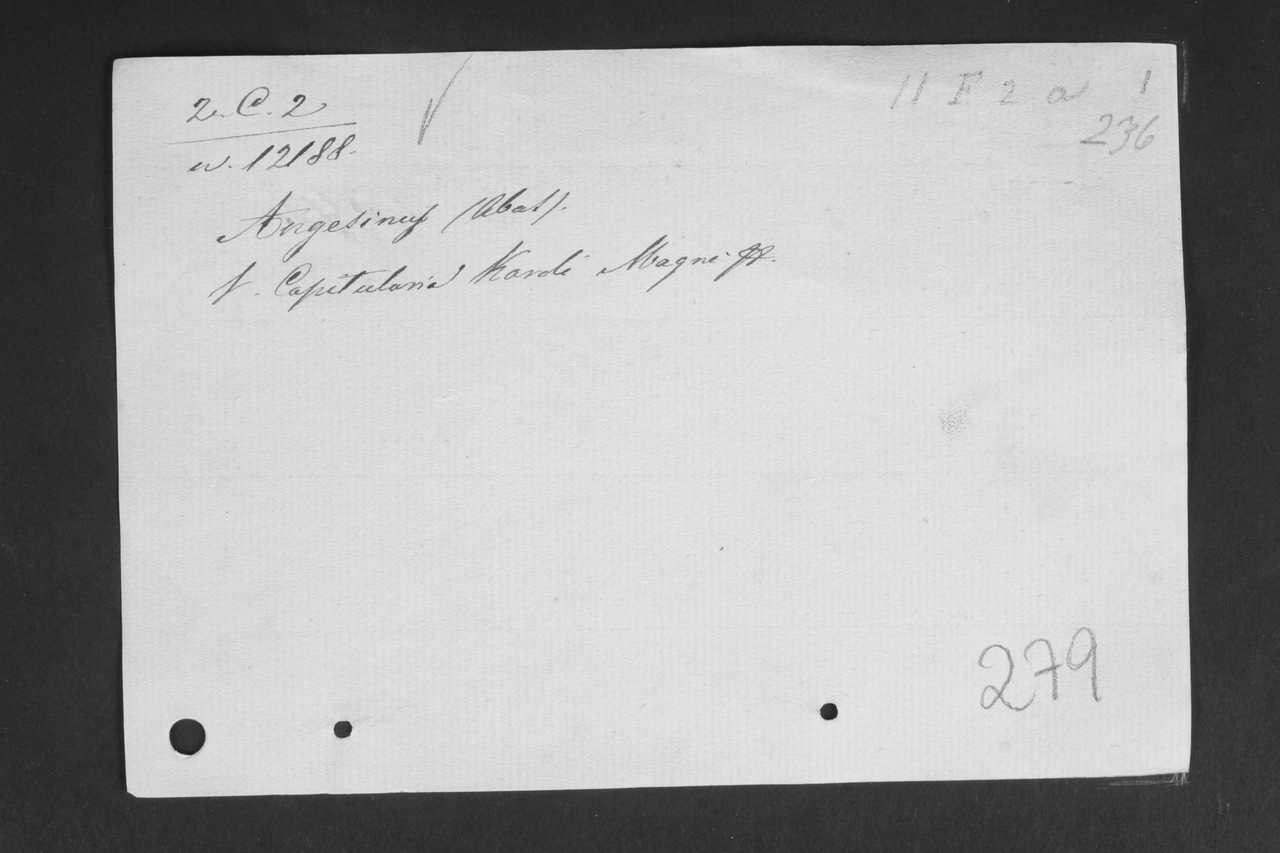 2. C. 2
w. 12188.
11 F 2 a 1
236
Angesinus (Abat).
v. Capitularia Karoli Magni
279